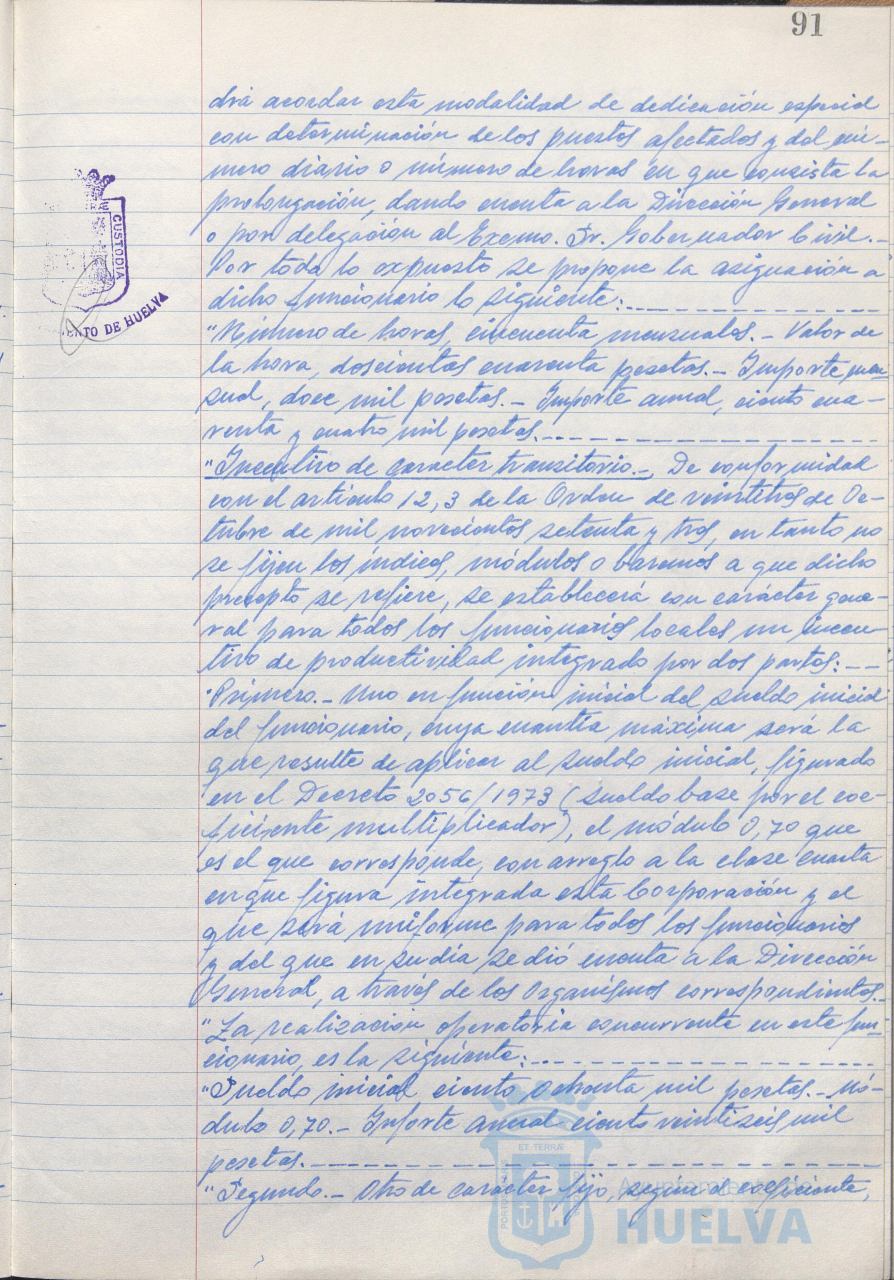 91
drá acordar esta modalidad de dedicación especial
con determinación de los puestos afectados y del nú-
mero diario o número de horas en que consista la
prolongación, dando cuenta a la Dirección General
o por delegación al Excmo. Sr. Gobernador Civil.-
Por todo lo expuesto se propone la asignación a
dicho funcionario lo siguiente:
"Número de horas, cincuenta mensuales.- Valor de
la hora, doscientas cuarenta pesetas.- Importe men-
sual, doce mil pesetas.- Importe anual, ciento cua-
renta y cuatro mil pesetas.
"Incentivo de carácter transitorio.- De conformidad
con el artículo 12,3 de la Orden de veintitrés de Oc-
tubre de mil novecientos setenta y tres, en tanto no
se fijen los índices, módulos o baremos a que dicho
precepto se refiere, se establecerá con carácter gene-
ral para todos los funcionarios locales un incen-
tivo de productividad integrado por dos partes:
"Primero.- Uno en función inicial del sueldo inicial
del funcionario, cuya cuantía máxima será la
que resulte de aplicar al sueldo inicial, figurado
en el Decreto 2056/1973 (sueldo base por el coe-
ficiente multiplicador), el módulo 0,70 que
es el que corresponde, con arreglo a la clase cuarta
en que figura integrada esta Corporación y el
que será uniforme para todos los funcionarios
y del que en su día se dió cuenta a la Dirección
General, a través de los Organismos correspondientes.-
"La realización operatoria concurrente en este fun-
cionario, es la siguiente:
"Sueldo inicial, ciento ochenta mil pesetas.- Mó-
dulo 0,70.- Importe anual ciento veintiseis mil
pesetas.
"Segundo.- Otro de carácter fijo, según el coeficiente,
CUSTODIA
NTO DE HUELVA
ET TERRÆ
Ayuntamiento de
HUELVA